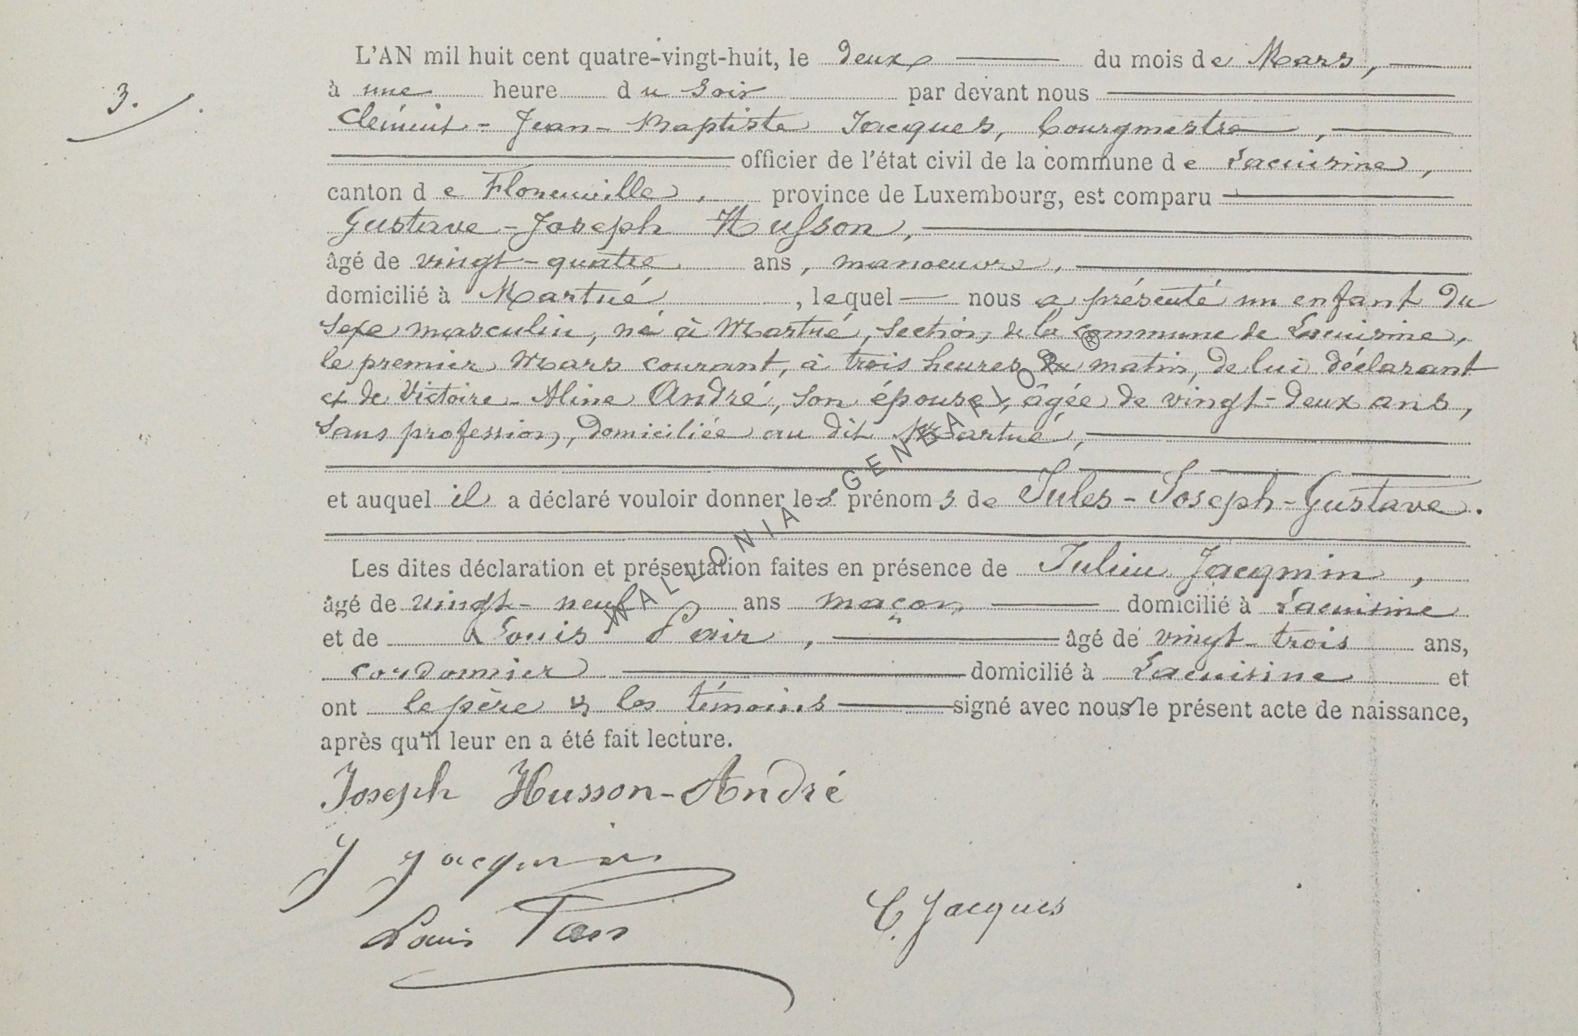 L'AN mil huit cent quatre-vingt-huit, le deux du mois de Mars,
3.
à une heure du soir par devant nous
Clément-Jean-Baptiste Jacques, Bourgmestre,
officier de l'état civil de la commune de Lacuisine,
canton de Florenville, province de Luxembourg, est comparu
Gustave-Joseph Husson,
âgé de vingt-quatre ans, manoeuvre,
domicilié à Martué, lequel nous a présenté un enfant du
sexe masculin, né à Martué, section de la commune de Lacuisine,
le premier Mars courant, à trois heures du matin, de lui déclarant
et de Victoire-Aline André, son épouse, âgée de vingt-deux ans,
sans profession, domiciliée au dit Martué,
et auquel il a déclaré vouloir donner les prénoms de Jules-Joseph-Gustave.
Les dites déclaration et présentation faites en présence de Julien Jacqmin,
âgé de vingt-neuf ans maçon domicilié à Lacuisine
et de Louis Pair, âgé de vingt-trois ans,
cordonnier domicilié à Lacuisine et
ont le père & les témoins signé avec nous le présent acte de naissance,
après qu'il leur en a été fait lecture.
Joseph Husson-André
J Jacqmin
C. Jacques
Louis Pair
WALLONIA GENBAFIOR ®